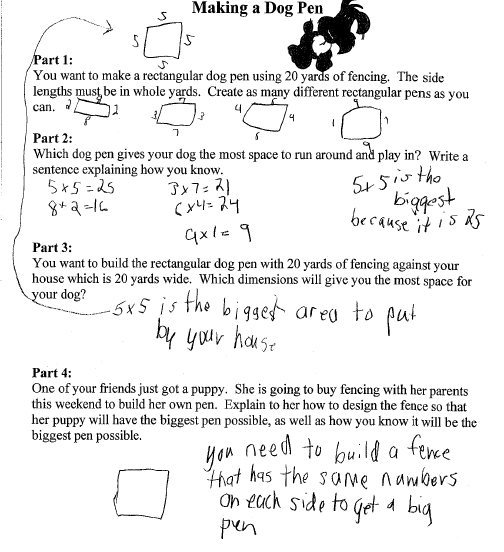 Making a Dog Pen
5
5
5
5
Part 1:
You want to make a rectangular dog pen using 20 yards of fencing. The side
lengths must be in whole yards. Create as many different rectangular pens as you
can.
2
2
8
3
3
7
4
4
6
1
9
9
Part 2:
Which dog pen gives your dog the most space to run around and play in? Write a
sentence explaining how you know.
5x5=25
8+2=16
3x7=21
6x4=24
9x1=9
5x5 is the
biggest
because it is 25
Part 3:
You want to build the rectangular dog pen with 20 yards of fencing against your
house which is 20 yards wide. Which dimensions will give you the most space for
your dog?
5x5 is the biggest area to put
by your house
Part 4:
One of your friends just got a puppy. She is going to buy fencing with her parents
this weekend to build her own pen. Explain to her how to design the fence so that
her puppy will have the biggest pen possible, as well as how you know it will be the
biggest pen possible.
you need to build a fence
that has the same numbers
on each side to get a big
pen